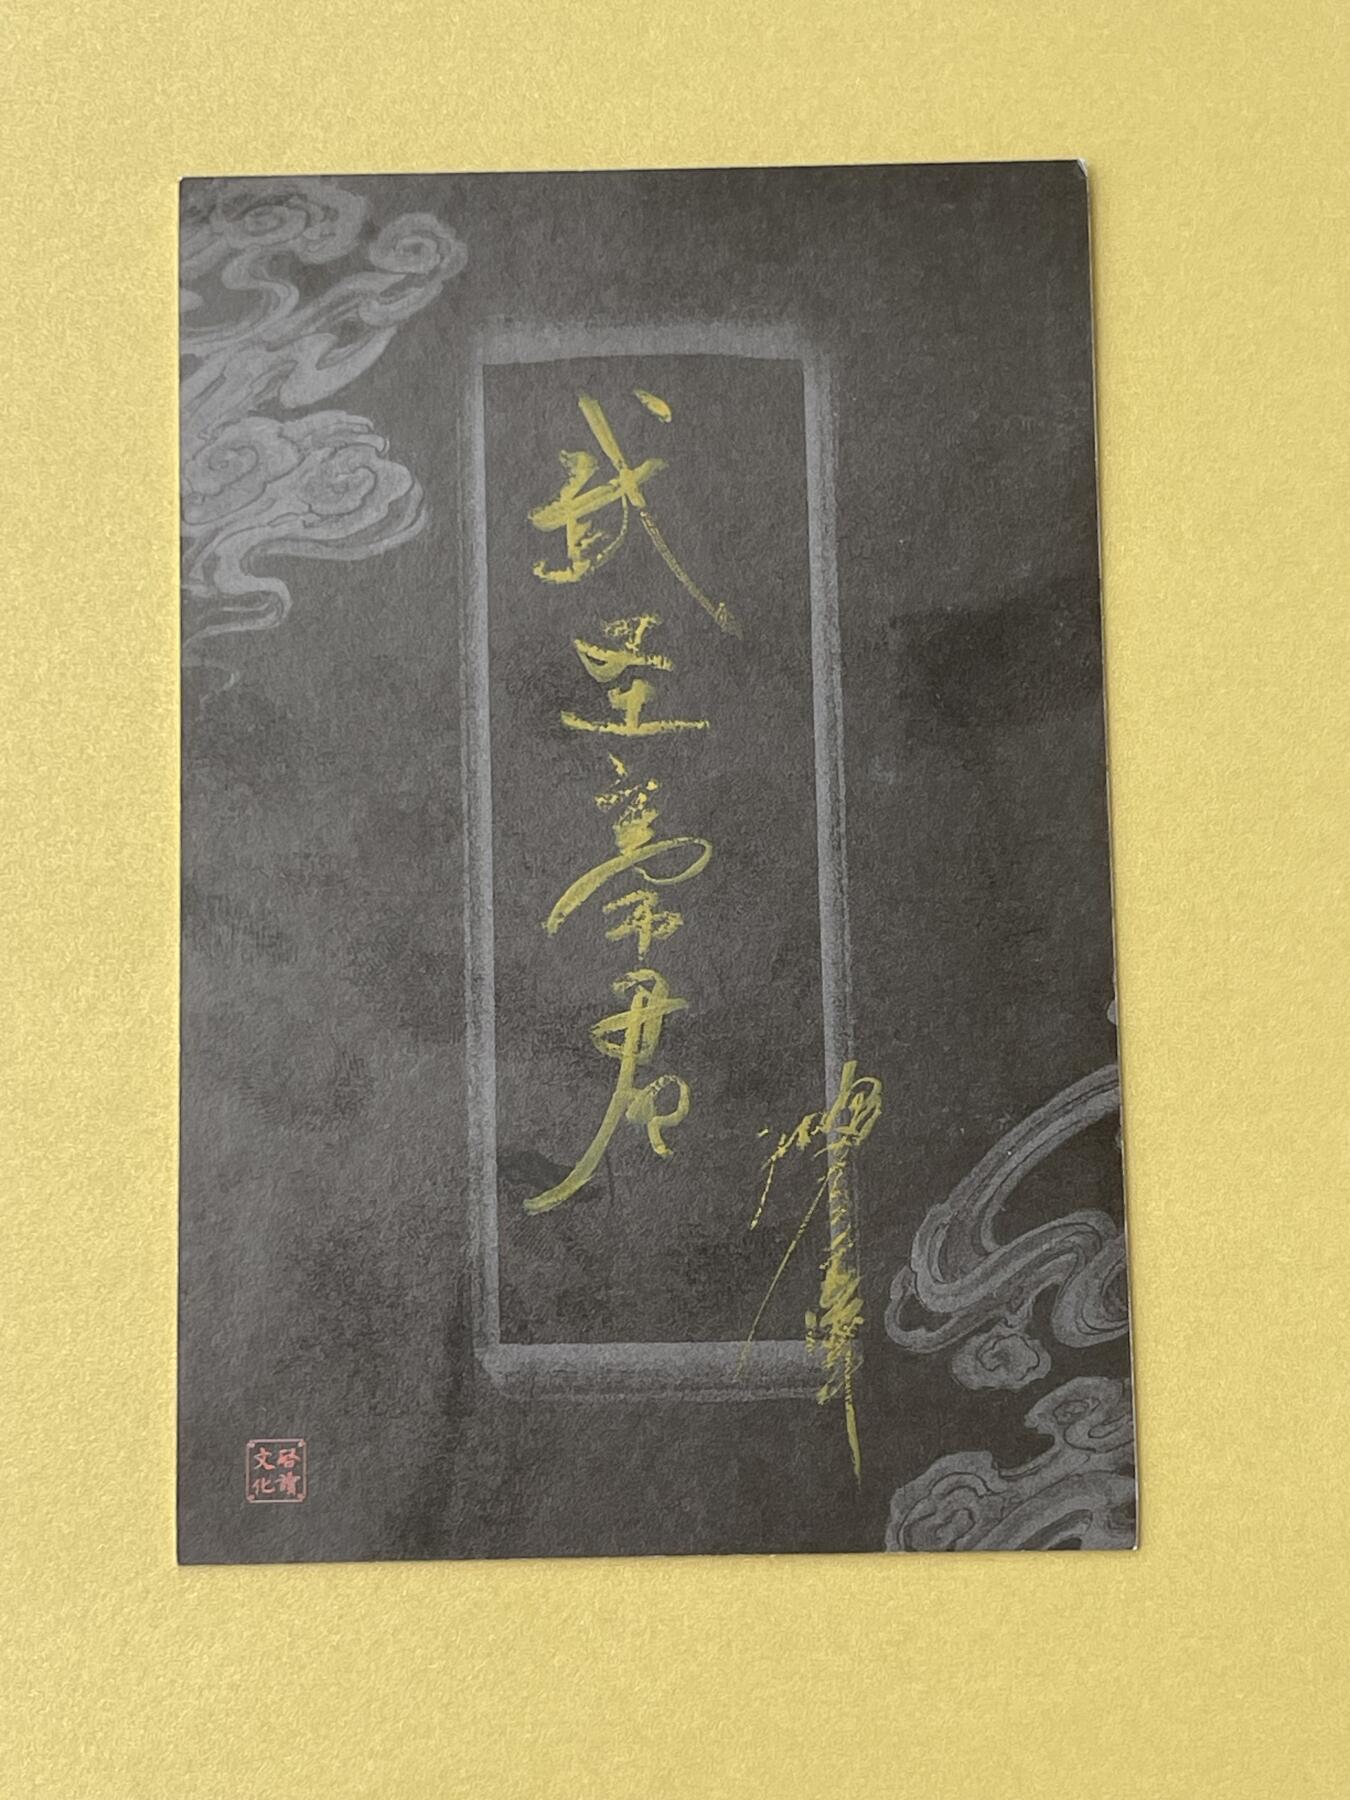 武圣帝君
啓讀
文化